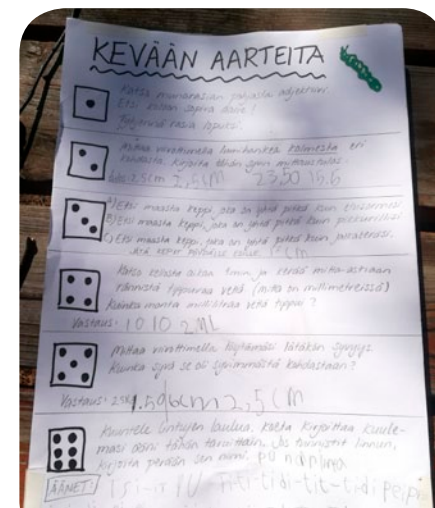 KEVÄÄN AARTEITA
Katso munarasian pohjasta adjektiivi.
Etsi kohan sopiva aarre!
Täytä rasia lopuksi.
Mittaa viivoittimella lumihankea kolmesta eri
kohdasta, kirjoita tähän syvin mittaustulos.
2,5cm 2,5cm 23,50 15,6
A) Etsi maasta keppi, joka on yhtä pitkä kuin etusormesi
B) Etsi maasta keppi, joka on yhtä pitkä kuin pikkurillisi
C) Etsi maasta keppi, joka on yhtä pitkä kuin jalkateräsi.
Katso kellosta aikaa 1min ja kerää mitta-astiaan
rännistä tippuvaa vettä (mitta on millimetreissä)
Kuinka monta millilitraa vettä tippui?
Vastaus: 10 10 2ML
Mittaa viivoittimella löytämäsi lätäkön syvyys.
Kuinka syvä se oli syvimmästä kohdastaan?
Vastaus: 1.596cm 2,5cm
Kuuntele lintujen laulua, koeta kirjoittaa kuule-
masi ääni tähän tavuittain. Jos tunnistit linnun,
kirjoita perään sen nimi.
ÄÄNET: ti-ti-ti-di-tit-ti-di